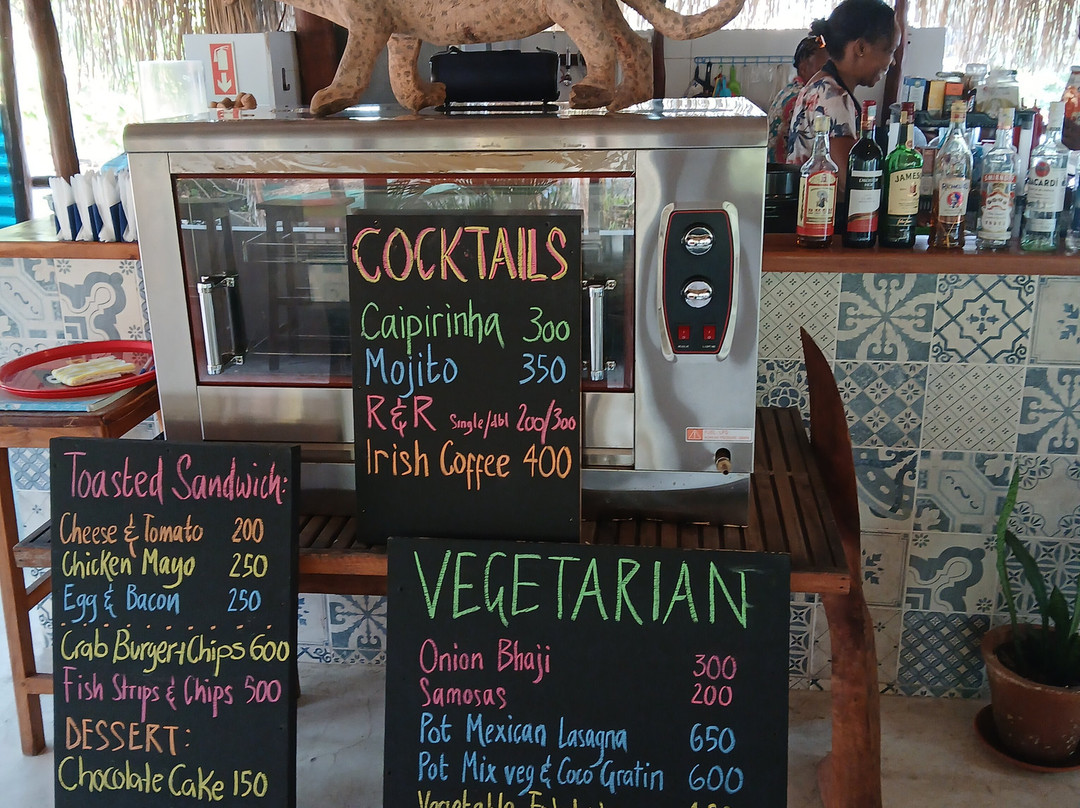 COCKTAILS
Caipirinha 300
Mojito 350
R&R Single/dbl 200/300
Irish Coffee 400
Toasted Sandwich:
Cheese & Tomato 200
Chicken Mayo 250
Egg & Bacon 250
Crab Burger+Chips 600
Fish Strips & Chips 500
DESSERT:
Chocolate Cake 150
VEGETARIAN
Onion Bhaji 300
Samosas 200
Pot Mexican Lasagna 650
Pot Mix veg & Coco Gratin 600
Vegetable
JAMES
BACARDI
SMIRNOFF